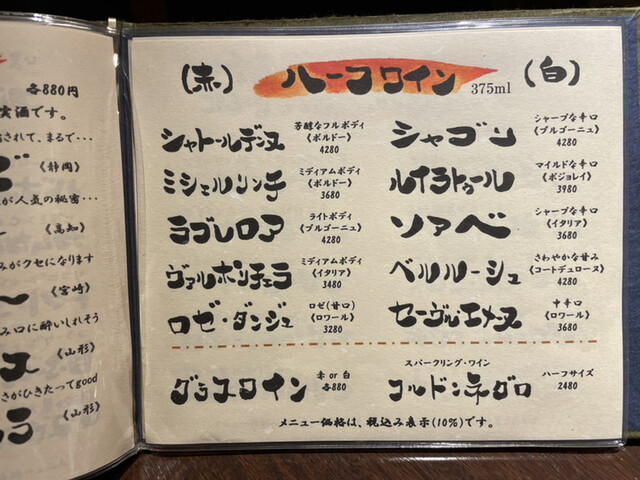 各880円
実酒です。
されて、まるで・・・
《静岡》
が人気の秘密・・・
《高知》
みがクセになります
《宮崎》
み口に酔いしれそう
《山形》
さがひきたってgood
《山形》
(赤) ハーフワイン 375ml (白)
シャトールデンヌ 芳醇なフルボディ
《ボルドー》
4280
ミシェルリンチ ミディアムボディ
《ボルドー》
3680
ラブレロア ライトボディ
《ブルゴーニュ》
4280
ヴァルポリチェラ ミディアムボディ
《イタリア》
3480
ロゼ・ダンジュ ロゼ(甘口)
《ロワール》
3280
シャブリ シャープな辛口
《ブルゴーニュ》
4280
ルイラトゥール マイルドな辛口
《ボジョレイ》
3980
ソアベ シャープな辛口
《イタリア》
3680
ベルルーシュ さわやかな甘み
《コートデュローヌ》
4280
セーヴルエメーヌ 中辛口
《ロワール》
3680
グラスワイン 赤 or 白
各880
スパークリング・ワイン
コルドンネグロ ハーフサイズ
2480
メニュー価格は、税込み表示(10%)です。